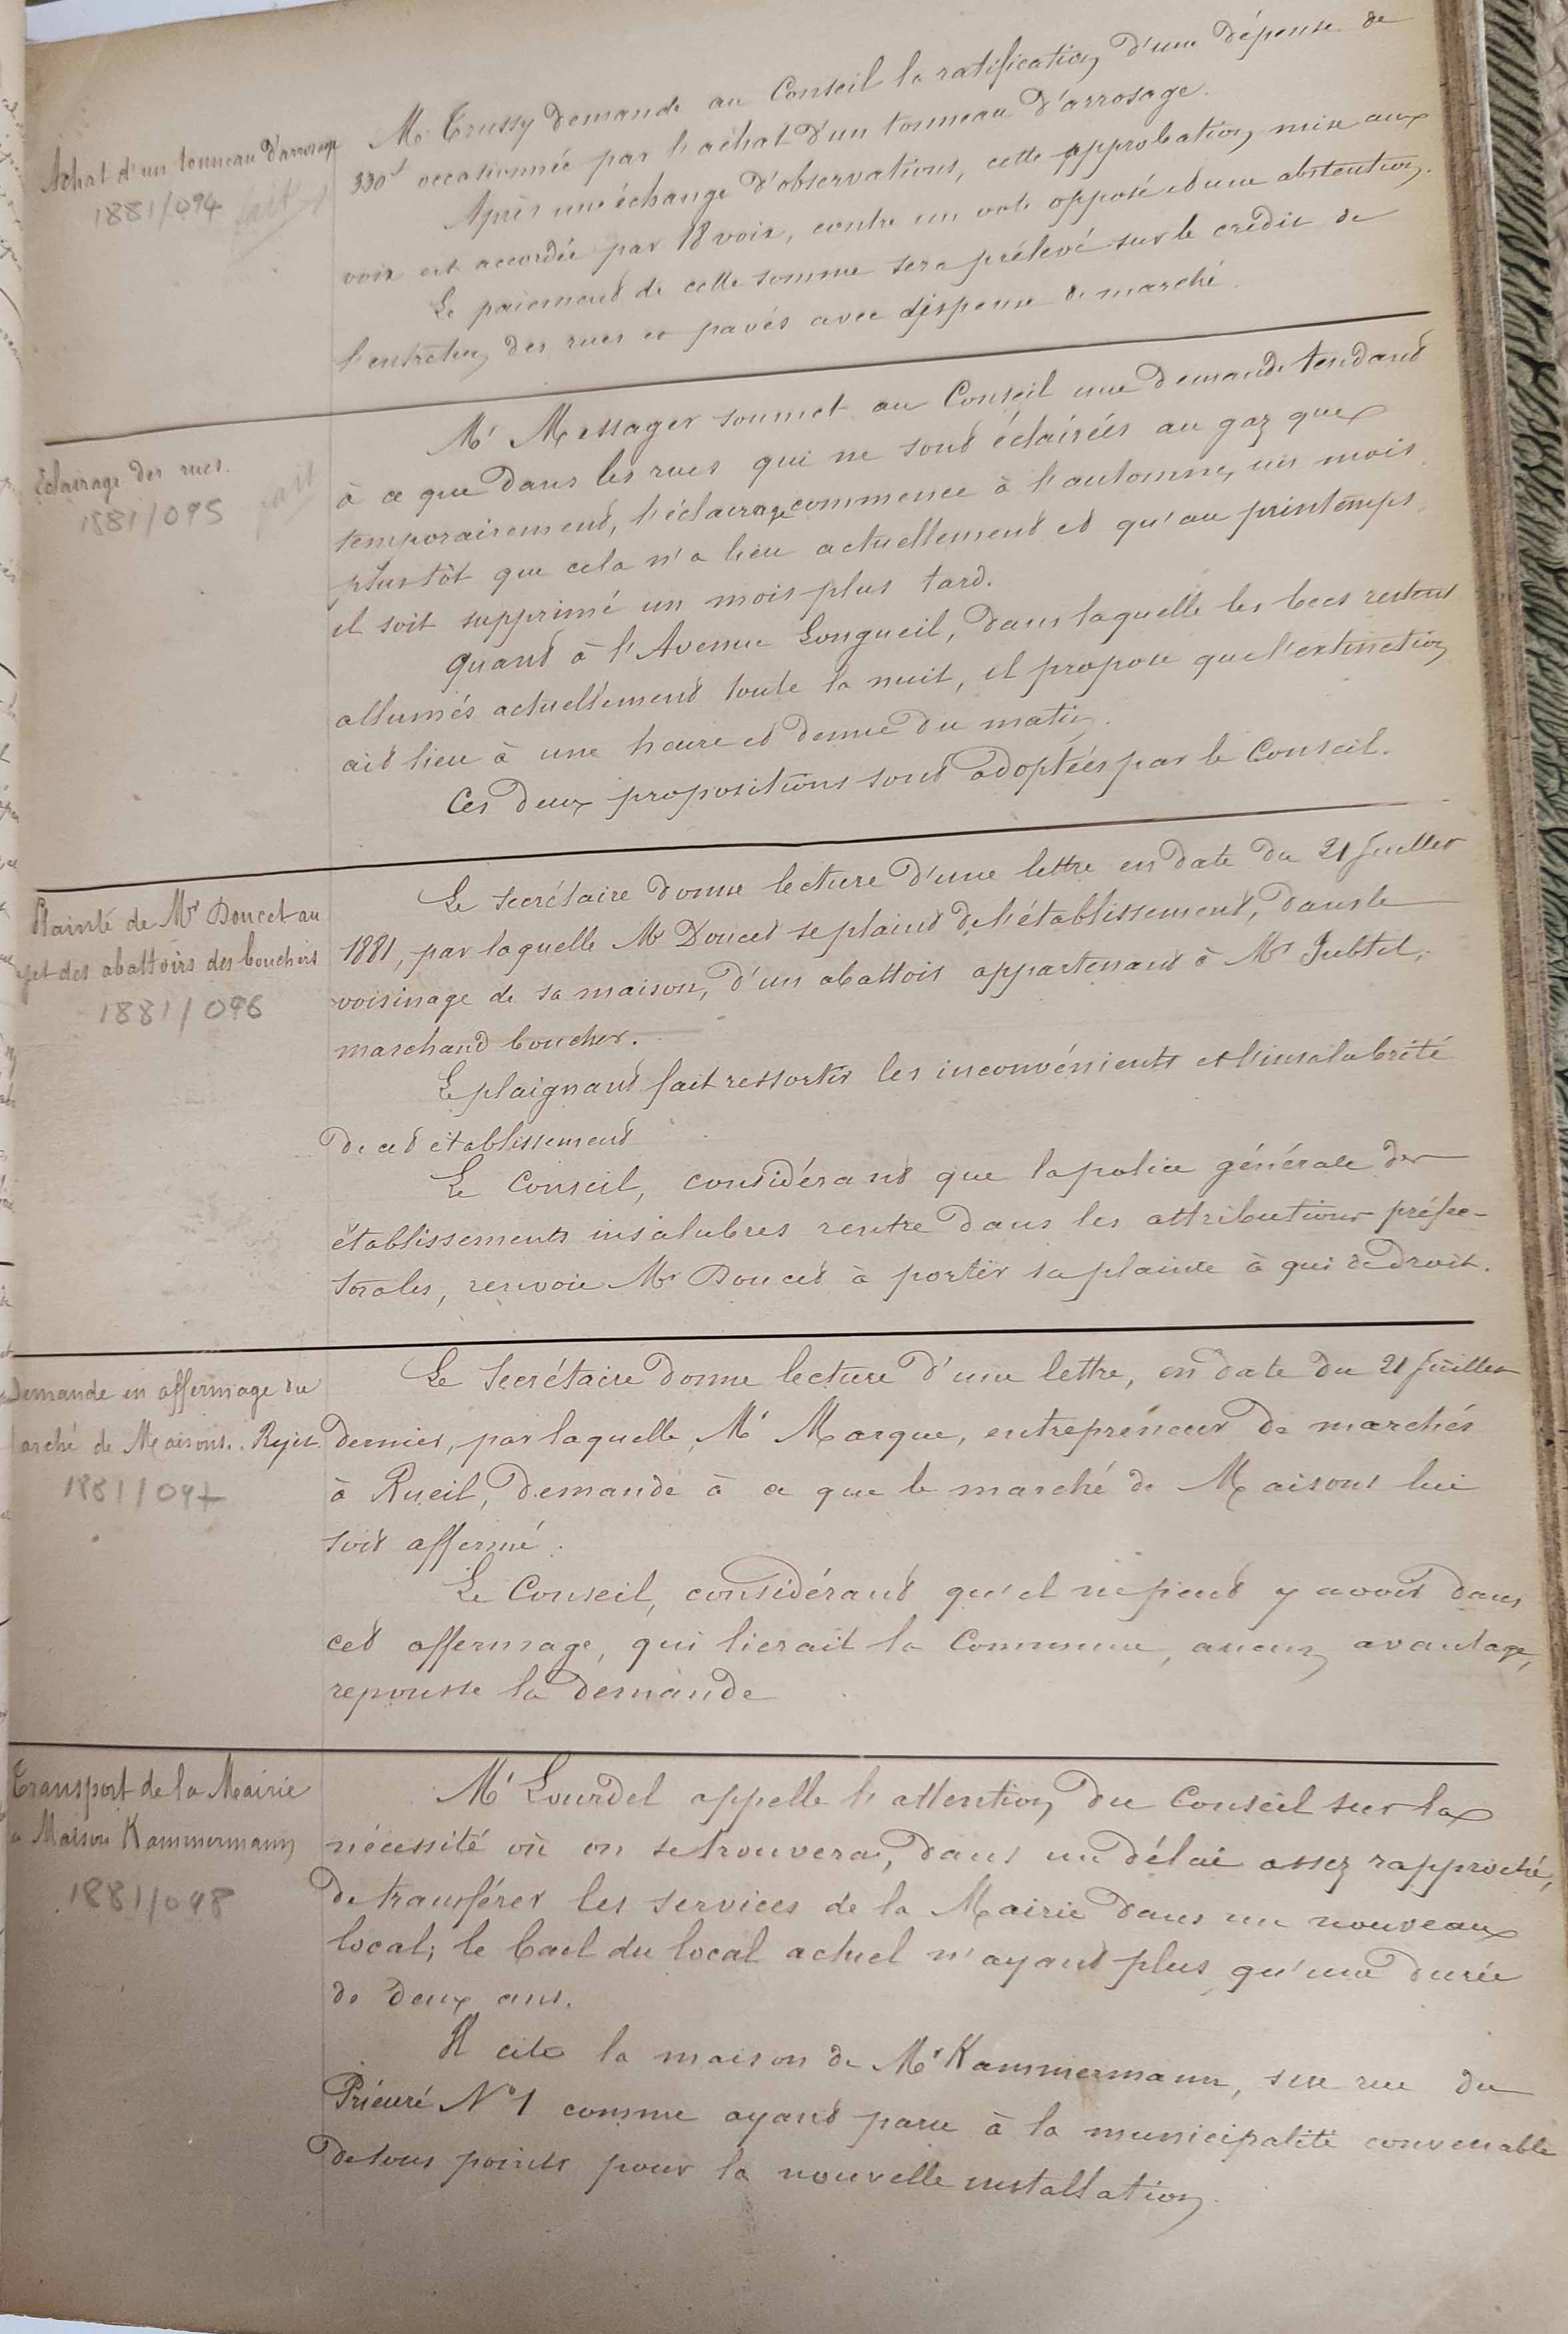 Achat d'un tonneau d'arrosage
1881/094 fait
M. Crussy demande au Conseil la ratification d'une dépense de
330f occasionnée par l'achat d'un tonneau d'arrosage.
Après une échange d'observations, cette approbation mise aux
voix est accordée par 18 voix, contre un vote opposé et une abstention.
Le paiement de cette somme sera prélevé sur le crédit de
l'entretien des rues et pavés avec dispense de marché.
Eclairage des rues.
1881/095 fait
Mr Messager soumet au Conseil une demande tendant
à ce que dans les rues qui ne sont éclairées au gaz que
temporairement, l'éclairage commence à l'automne, un mois
plustôt que cela n'a lieu actuellement et qu'au printemps
il soit supprimé un mois plus tard.
Quant à l'Avenue Longueil, dans laquelle les becs restent
allumés actuellement toute la nuit, il propose que l'extinction
ait lieu à une heure et demie du matin.
Ces deux propositions sont adoptées par le Conseil.
Plainte de Mr Doucet au
jet des abattoirs des bouchers
1881/096
Le Secrétaire donne lecture d'une lettre en date du 21 Juillet
1881, par laquelle Mr Doucet se plaint de l'établissement, dans le
voisinage de sa maison, d'un abattoir appartenant à Mr
marchand boucher.
Le plaignant fait ressortir les inconvénients et l'insalubrité
de cet établissement
Le Conseil, considérant que la police générale des
établissements insalubres rentre dans les attributions préfec-
torales, renvoie Mr Doucet à porter sa plainte à qui de droit.
Demande en affermage du
arché de Maisons. Rejet
1881/097
Le Secrétaire donne lecture d'une lettre, en date du 21 Juillet
dernier, par laquelle Mr Marque, entrepreneur de marchés
à Rueil, demande à ce que le marché de Maisons lui
soit affermé.
Le Conseil, considérant qu'il ne peut y avoir dans
cet affermage, qui lierait la Commune, aucun avantage,
repousse la demande
Transport de la Mairie
a Maison Kammermann
1881/098
Mr Lourdel appelle l'attention du Conseil sur la
nécessité où on se trouvera, dans un délai assez rapproché,
de transférer les services de la Mairie dans un nouveau
local; le bail du local actuel n'ayant plus qu'une durée
de deux ans.
Il cite la maison de Mr Kammermann, sise rue du
Prieuré No 1 comme ayant paru à la municipalité convenable
de tous points pour la nouvelle installation.